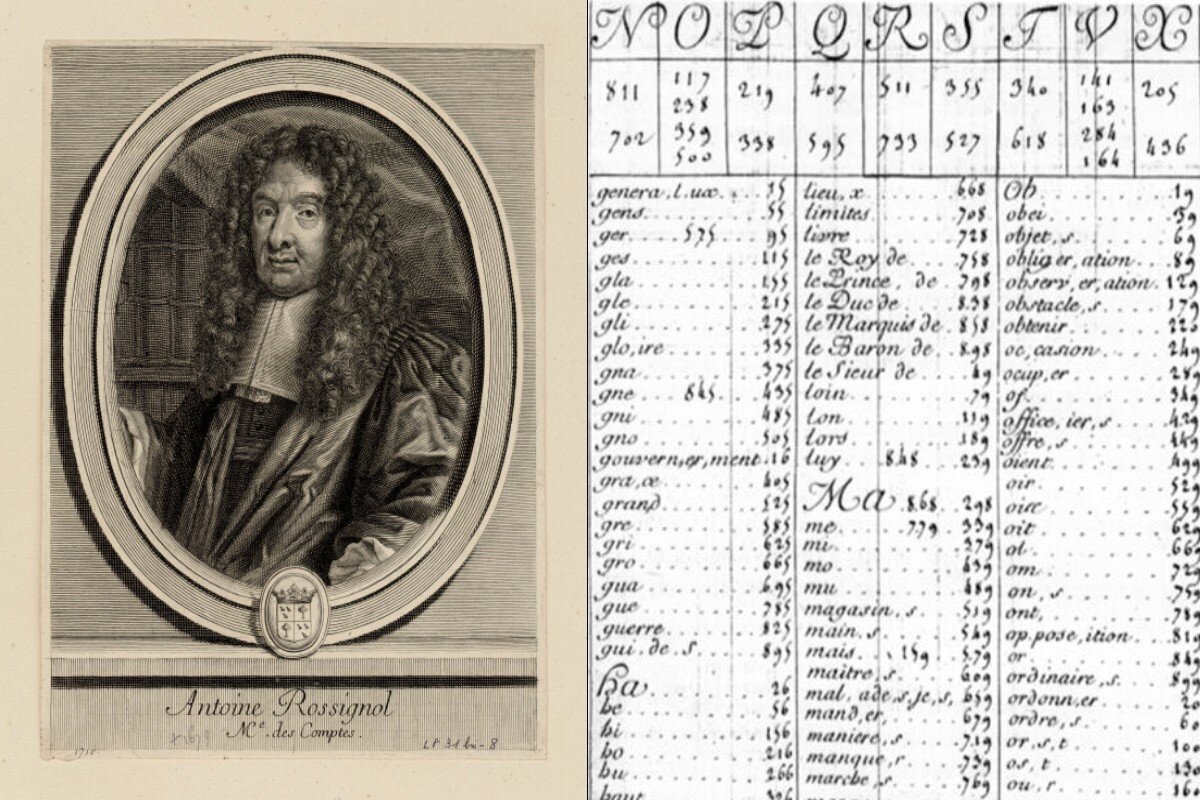 Antoine Rossignol
Me. des Comptes.
1710.
LP 31 bis - 8
N O P Q R S T V X
117 141
811 219 407 511 355 340 205
238 163
359 284
702 338 595 733 527 618 436
500 164
genera, l. ux. . . 15
gens . . . 55
ger . . 575 . . . 95
ges . . . 115
gla . . . 155
gle . . . 215
gli . . . 275
glo, ire . . . 335
gna . . . 375
gne . . 845 . . . 435
gni . . . 485
gno . . . 505
gouvern, er, ment . 16
gra, ce . . . 405
grand . . . 525
gre . . . 585
gri . . . 625
gro . . . 665
gua . . . 695
gue . . . 785
guerre . . . 825
gui. de. s . . . 895
ha . . . 26
he . . . 56
hi . . . 156
ho . . . 216
hu . . . 266
haut . . . 326
lieu, x . . . 668
limites . . . 708
livre . . . 728
le Roy de . . . 758
le Prince, de . 798
le Duc de . . . 838
le Marquis de . 858
le Baron de . . 898
le Sieur de . . 49
loin . . . 79
lon . . . 119
lors . . . 189
luy . . 848 . . 239
Ma . 868 . 298
me . . 779 . 339
mi . . . 379
mo . . . 439
mu . . . 489
magasin, s . . 519
main. s . . . 549
mais . . 159 . . 579
maitre, s . . . 609
mal, ade, s, je, s, 659
mand, er, . . . 679
maniere, s . . . 719
manque, r . . . 739
marche, s . . . 769
Ob . . . 19
obei . . . 39
objet, s . . . 69
oblig er, ation . 89
observ, er, ation . 129
obstacle, s . . . 179
obtenir . . . 229
oc, casion . . . 249
ocup, er . . . 289
of . . . 349
office, ier, s . . 429
offre, s . . . 469
oient . . . 499
oir . . . 529
oise . . . 559
oit . . . 629
ol . . . 669
om . . . 729
on, s . . . 759
ont, . . . 789
op. pose, ition . . 819
or . . . 849
ordinaire, s . . . 899
ordonn, er . . . 20
ordre, s . . . 60
or, s, t . . . 100
os, t . . . 130
ou, r . . . 160